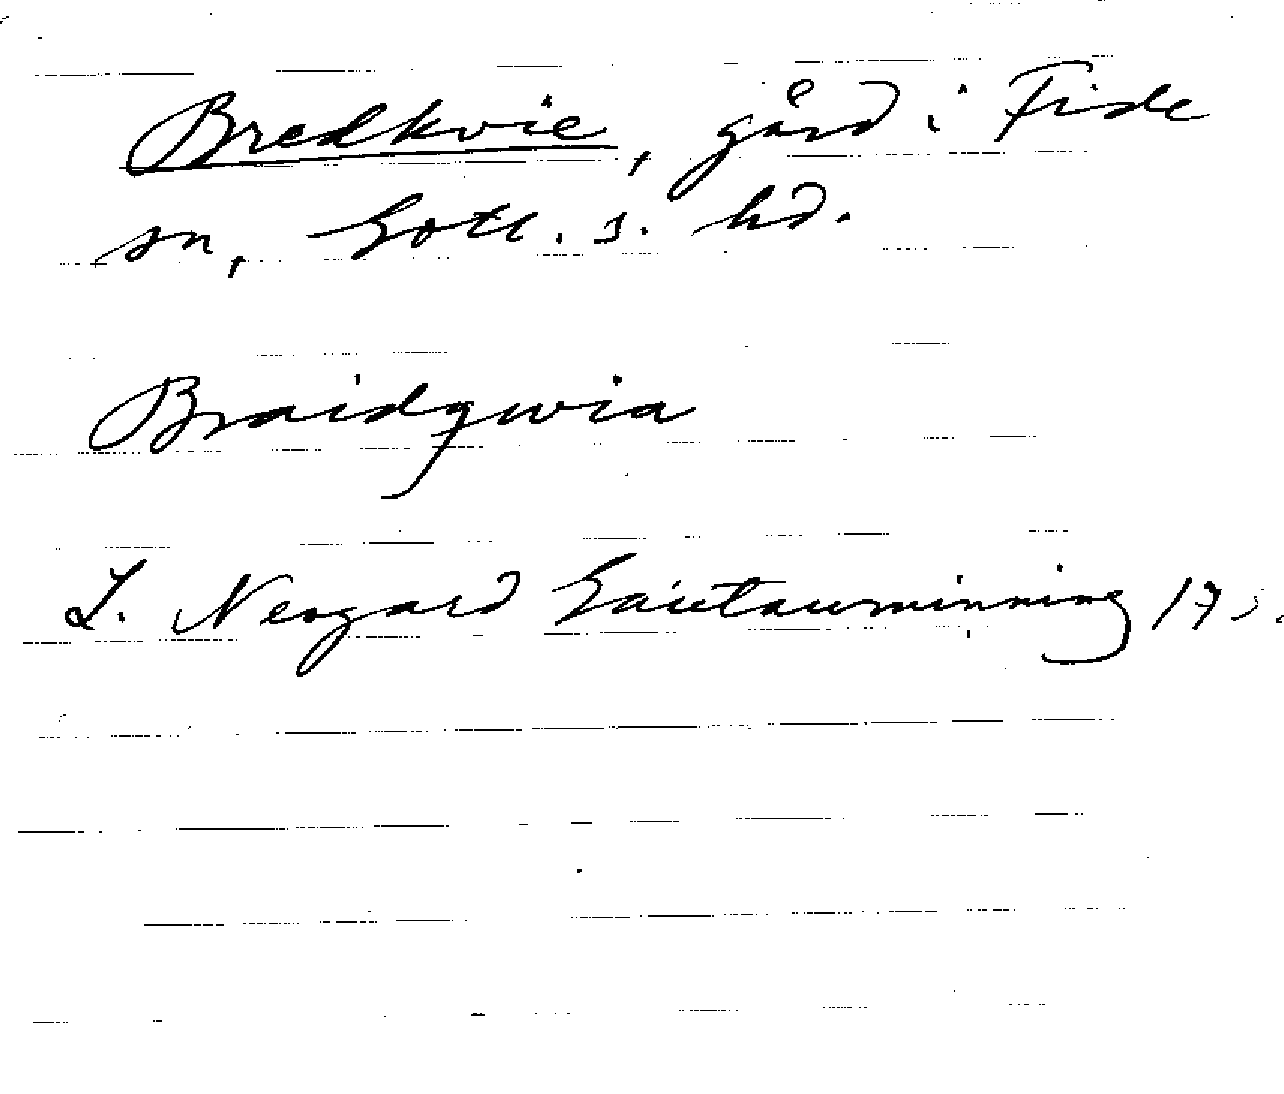 Bredkvie, gård i Fide
sn, Gotl. s. hd.
Braidqwia
L. Neogard Gautauminning